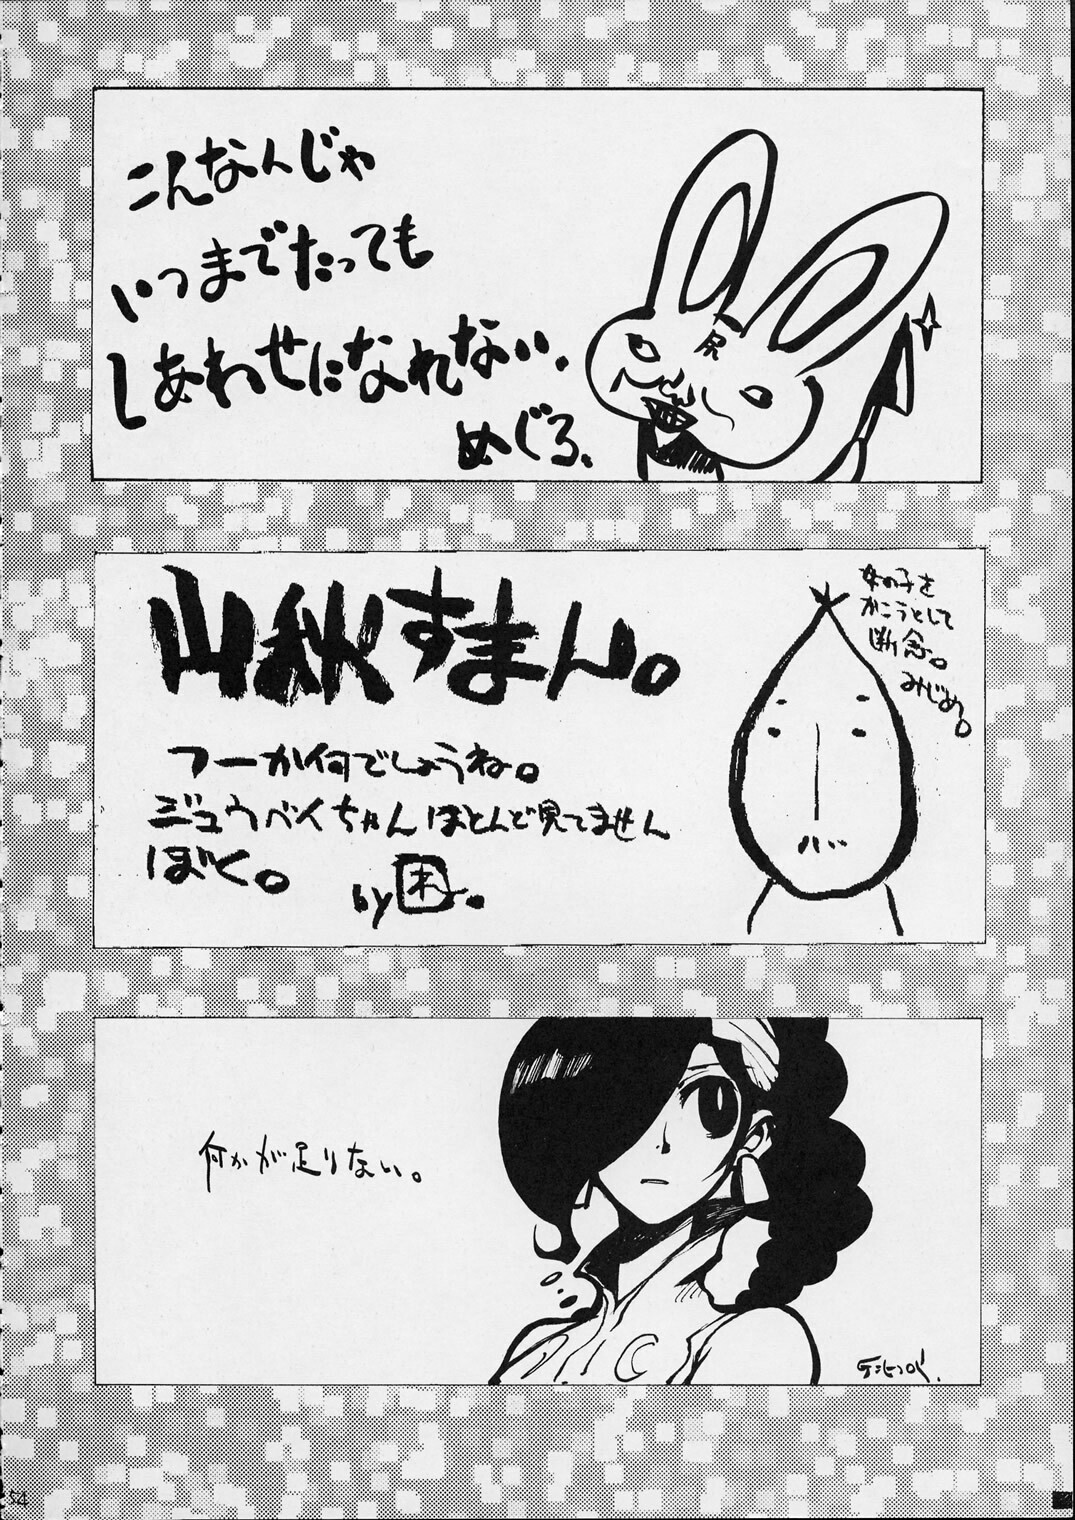 こんなんじゃ
いつまでたっても
しあわせになれない。
めぐろ、
尻
山秋すまん。
フーか何でしょうね。
ジュウベイちゃんほとんど見てません
ぼく。
by困。
女の子を
かこうとして
断念。
みじめ。
何かが足りない。
54